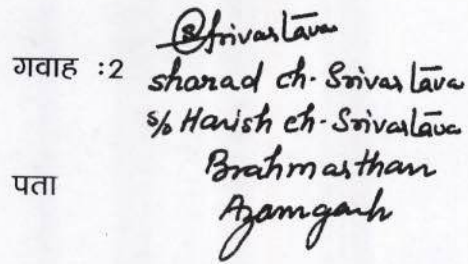 Srivastava
गवाह :2 sharad ch. Srivastava
s/o Harish ch. Srivastava
पता Brahmasthan
Azamgarh